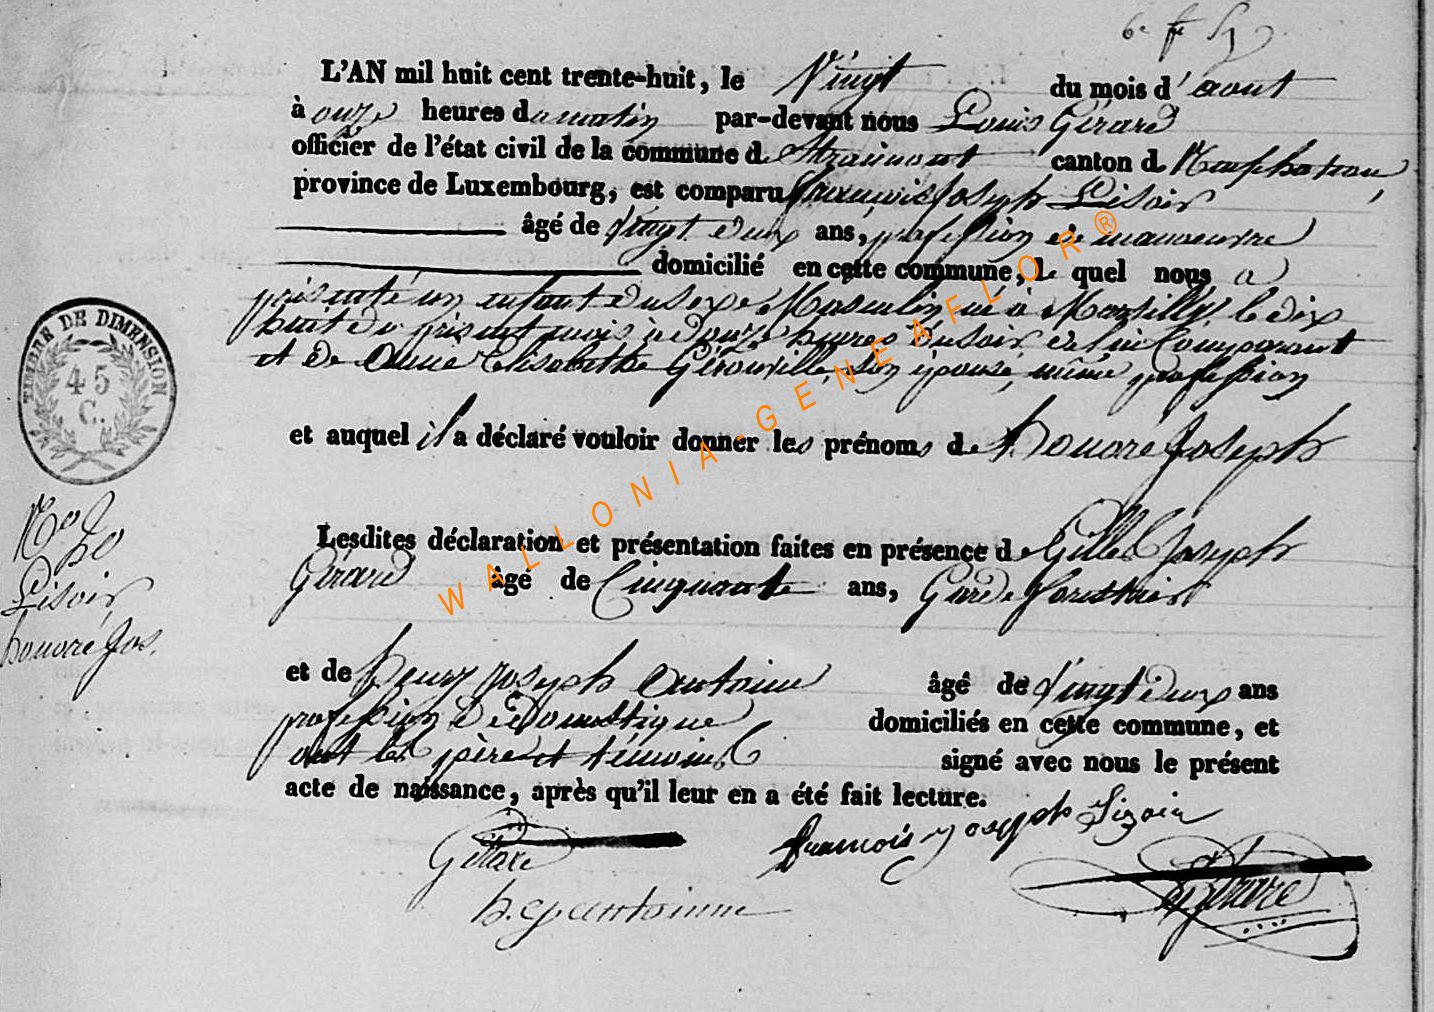 L'AN mil huit cent trente-huit, le Vingt du mois d'aout
à onze heures du matin par-devant nous Louis Gérard
officier de l'état civil de la commune de Straimont canton de Neufchateau
province de Luxembourg, est comparu françois Joseph Lisoir
âgé de Vingt deux ans, profession de manoeuvre
domicilié en cette commune, le quel nous a
présenté un enfant du sexe Masculin, né à Martilly, le dix
huit du présent mois à douze heures du soir de lui Comparant
et de Anne Elisabethe Gérouville, son épouse, même profession
et auquel il a déclaré vouloir donner les prénoms de honoré Joseph
Lesdites déclaration et présentation faites en présence de Gilles Joseph
Gérard âgé de Cinquante ans, Garde forestier
et de henry Joseph Antoine âgé de Vingt deux ans
profession de domestique domiciliés en cette commune, et
ont les père et témoins signé avec nous le présent
acte de naissance, après qu'il leur en a été fait lecture.
Gérard françois Joseph Lizoir
h. j. antoinne Gérard
TIMBRE DE DIMENSION
45
C.
No 20
Lisoir
honoré Jos.
WALLONIA-GENEAFLOR®